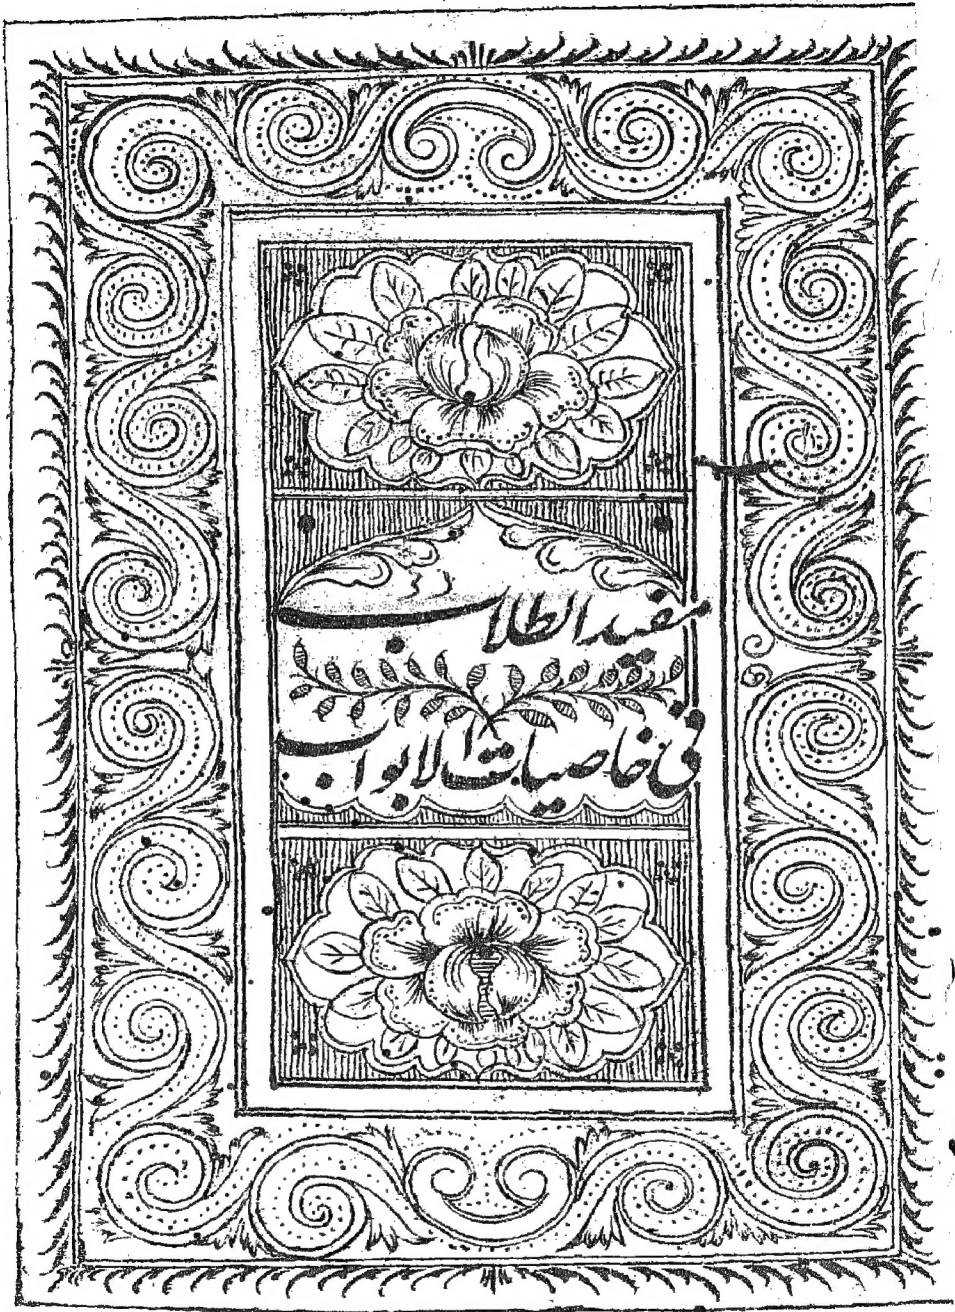 مفید الطلاب
فی خاصیات الابواب